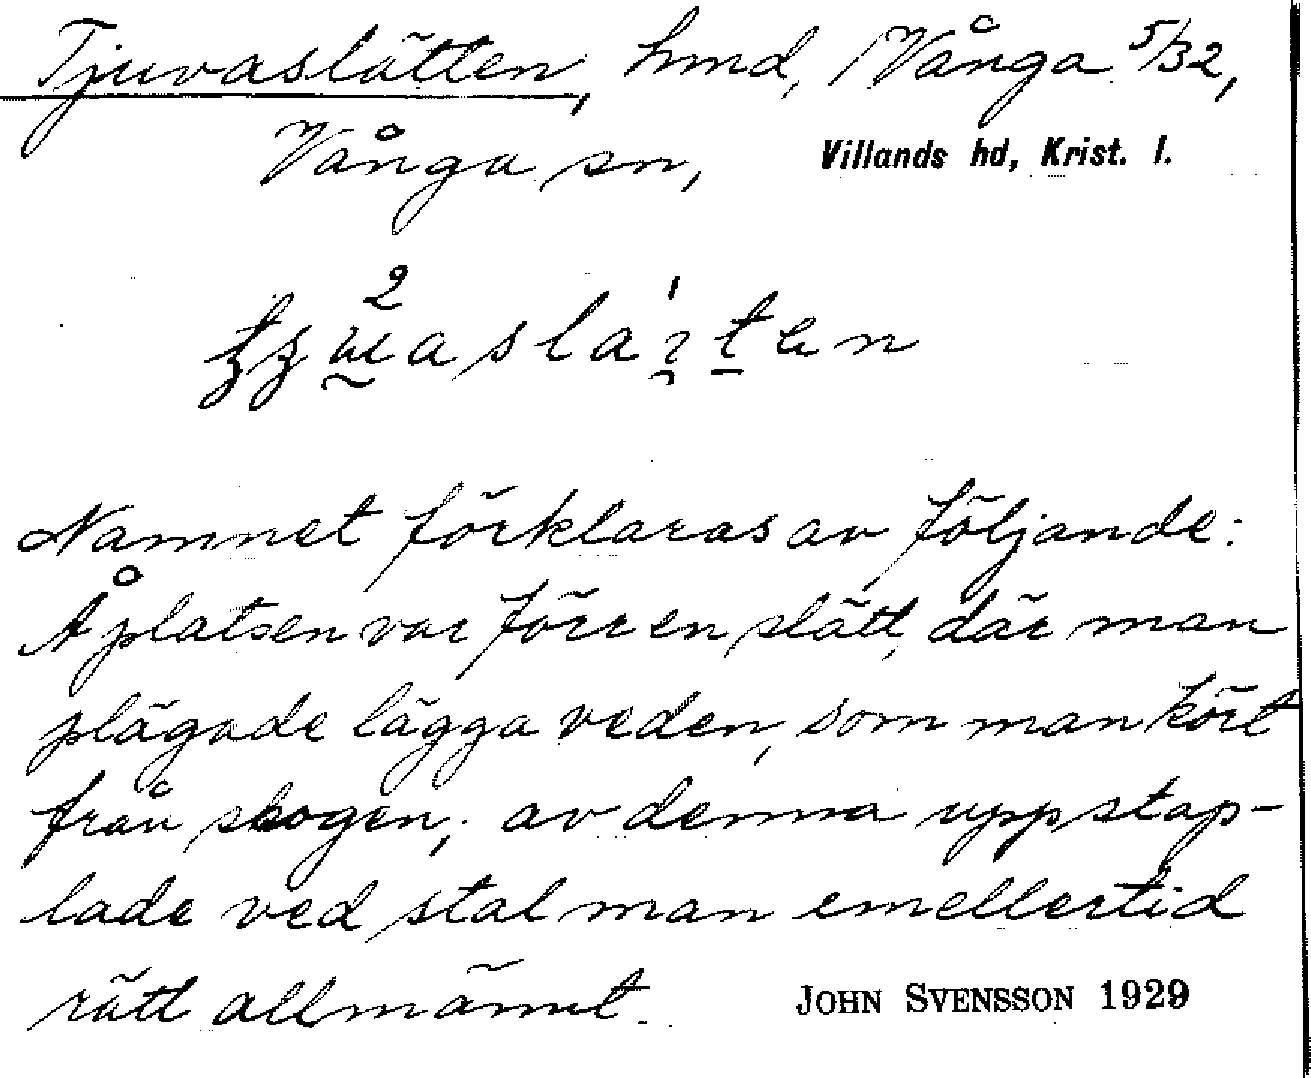 Tjuvaslätten, hmd, Vånga 5/32,
Vånga sn, Villands hd, Krist. l.
Namnet förklaras av följande:
Å platsen var förr en slätt, där man
plägade lägga veden, som man kört
från skogen; av denna uppstap-
lade ved stal man emellertid
rätt allmänt.
JOHN SVENSSON 1929